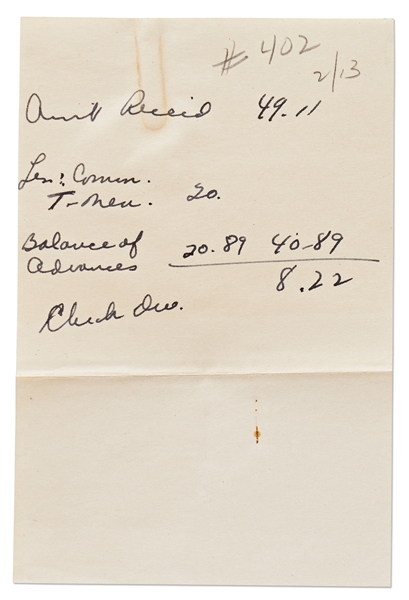 # 402
2/13
Amt Reccid 49.11
Les: Comm.
T-Men. 20.
Balance of
Advances 20.89 40-89
8.22
Check Due.